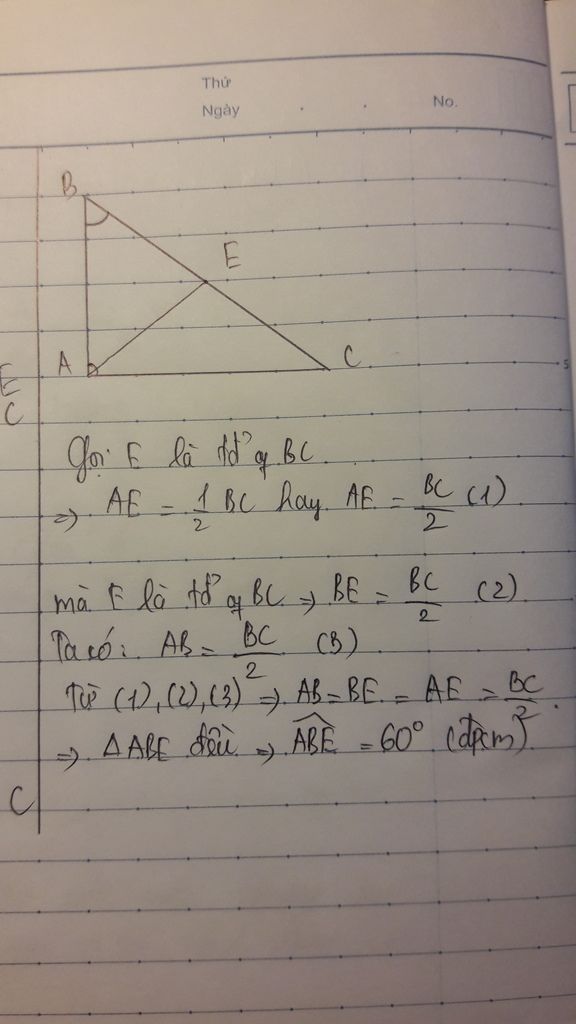 Thứ
Ngày . . No.
B
E
A
C
E
C
5
Gọi E là tđ² của BC
⇒ AE = 1/2 BC hay AE = BC/2 (1)
mà E là tđ² của BC ⇒ BE = BC/2 (2)
Ta có: AB = BC/2 (3)
Từ (1), (2), (3) ⇒ AB = BE = AE = BC/2.
⇒ ΔABE đều ⇒ \widehat{ABE} = 60° (đpcm)
C